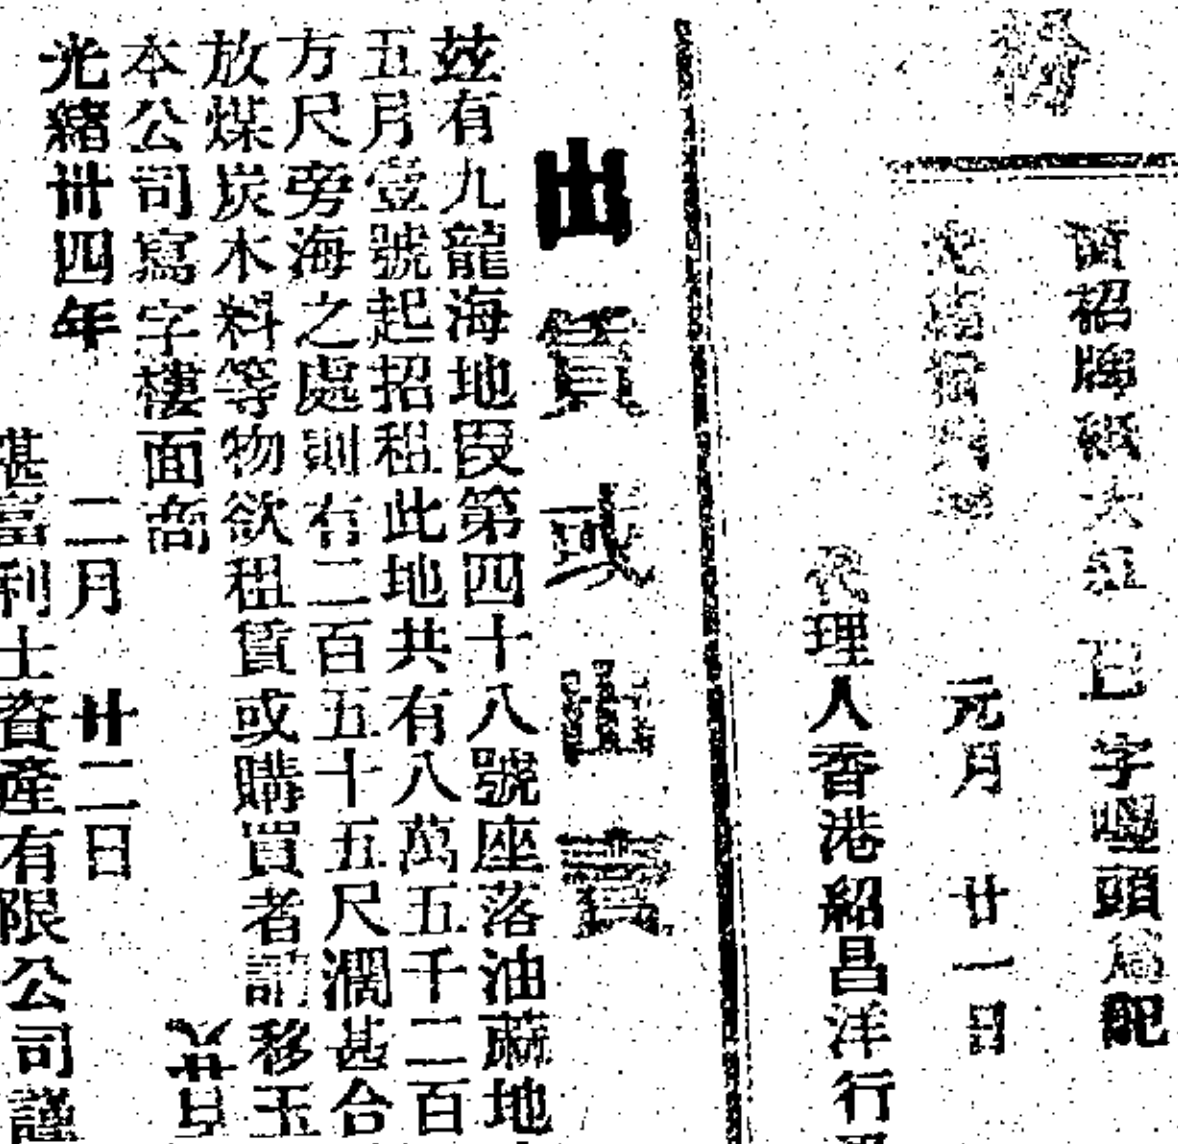 招牌紙大紅 字嘜頭為記
元月 廿一日
代理人香港紹昌洋行
出賃或出賣
茲有九龍海地段第四十八號座落油蔴地
五月壹號起招租此地共有八萬五千二百
方尺旁海之處則有二百五十五尺濶甚合
放煤炭木料等物欲租賃或購買者請移玉
本公司寫字樓面商
光緒卅四年 二月 廿二日
堪富利士資產有限公司謹